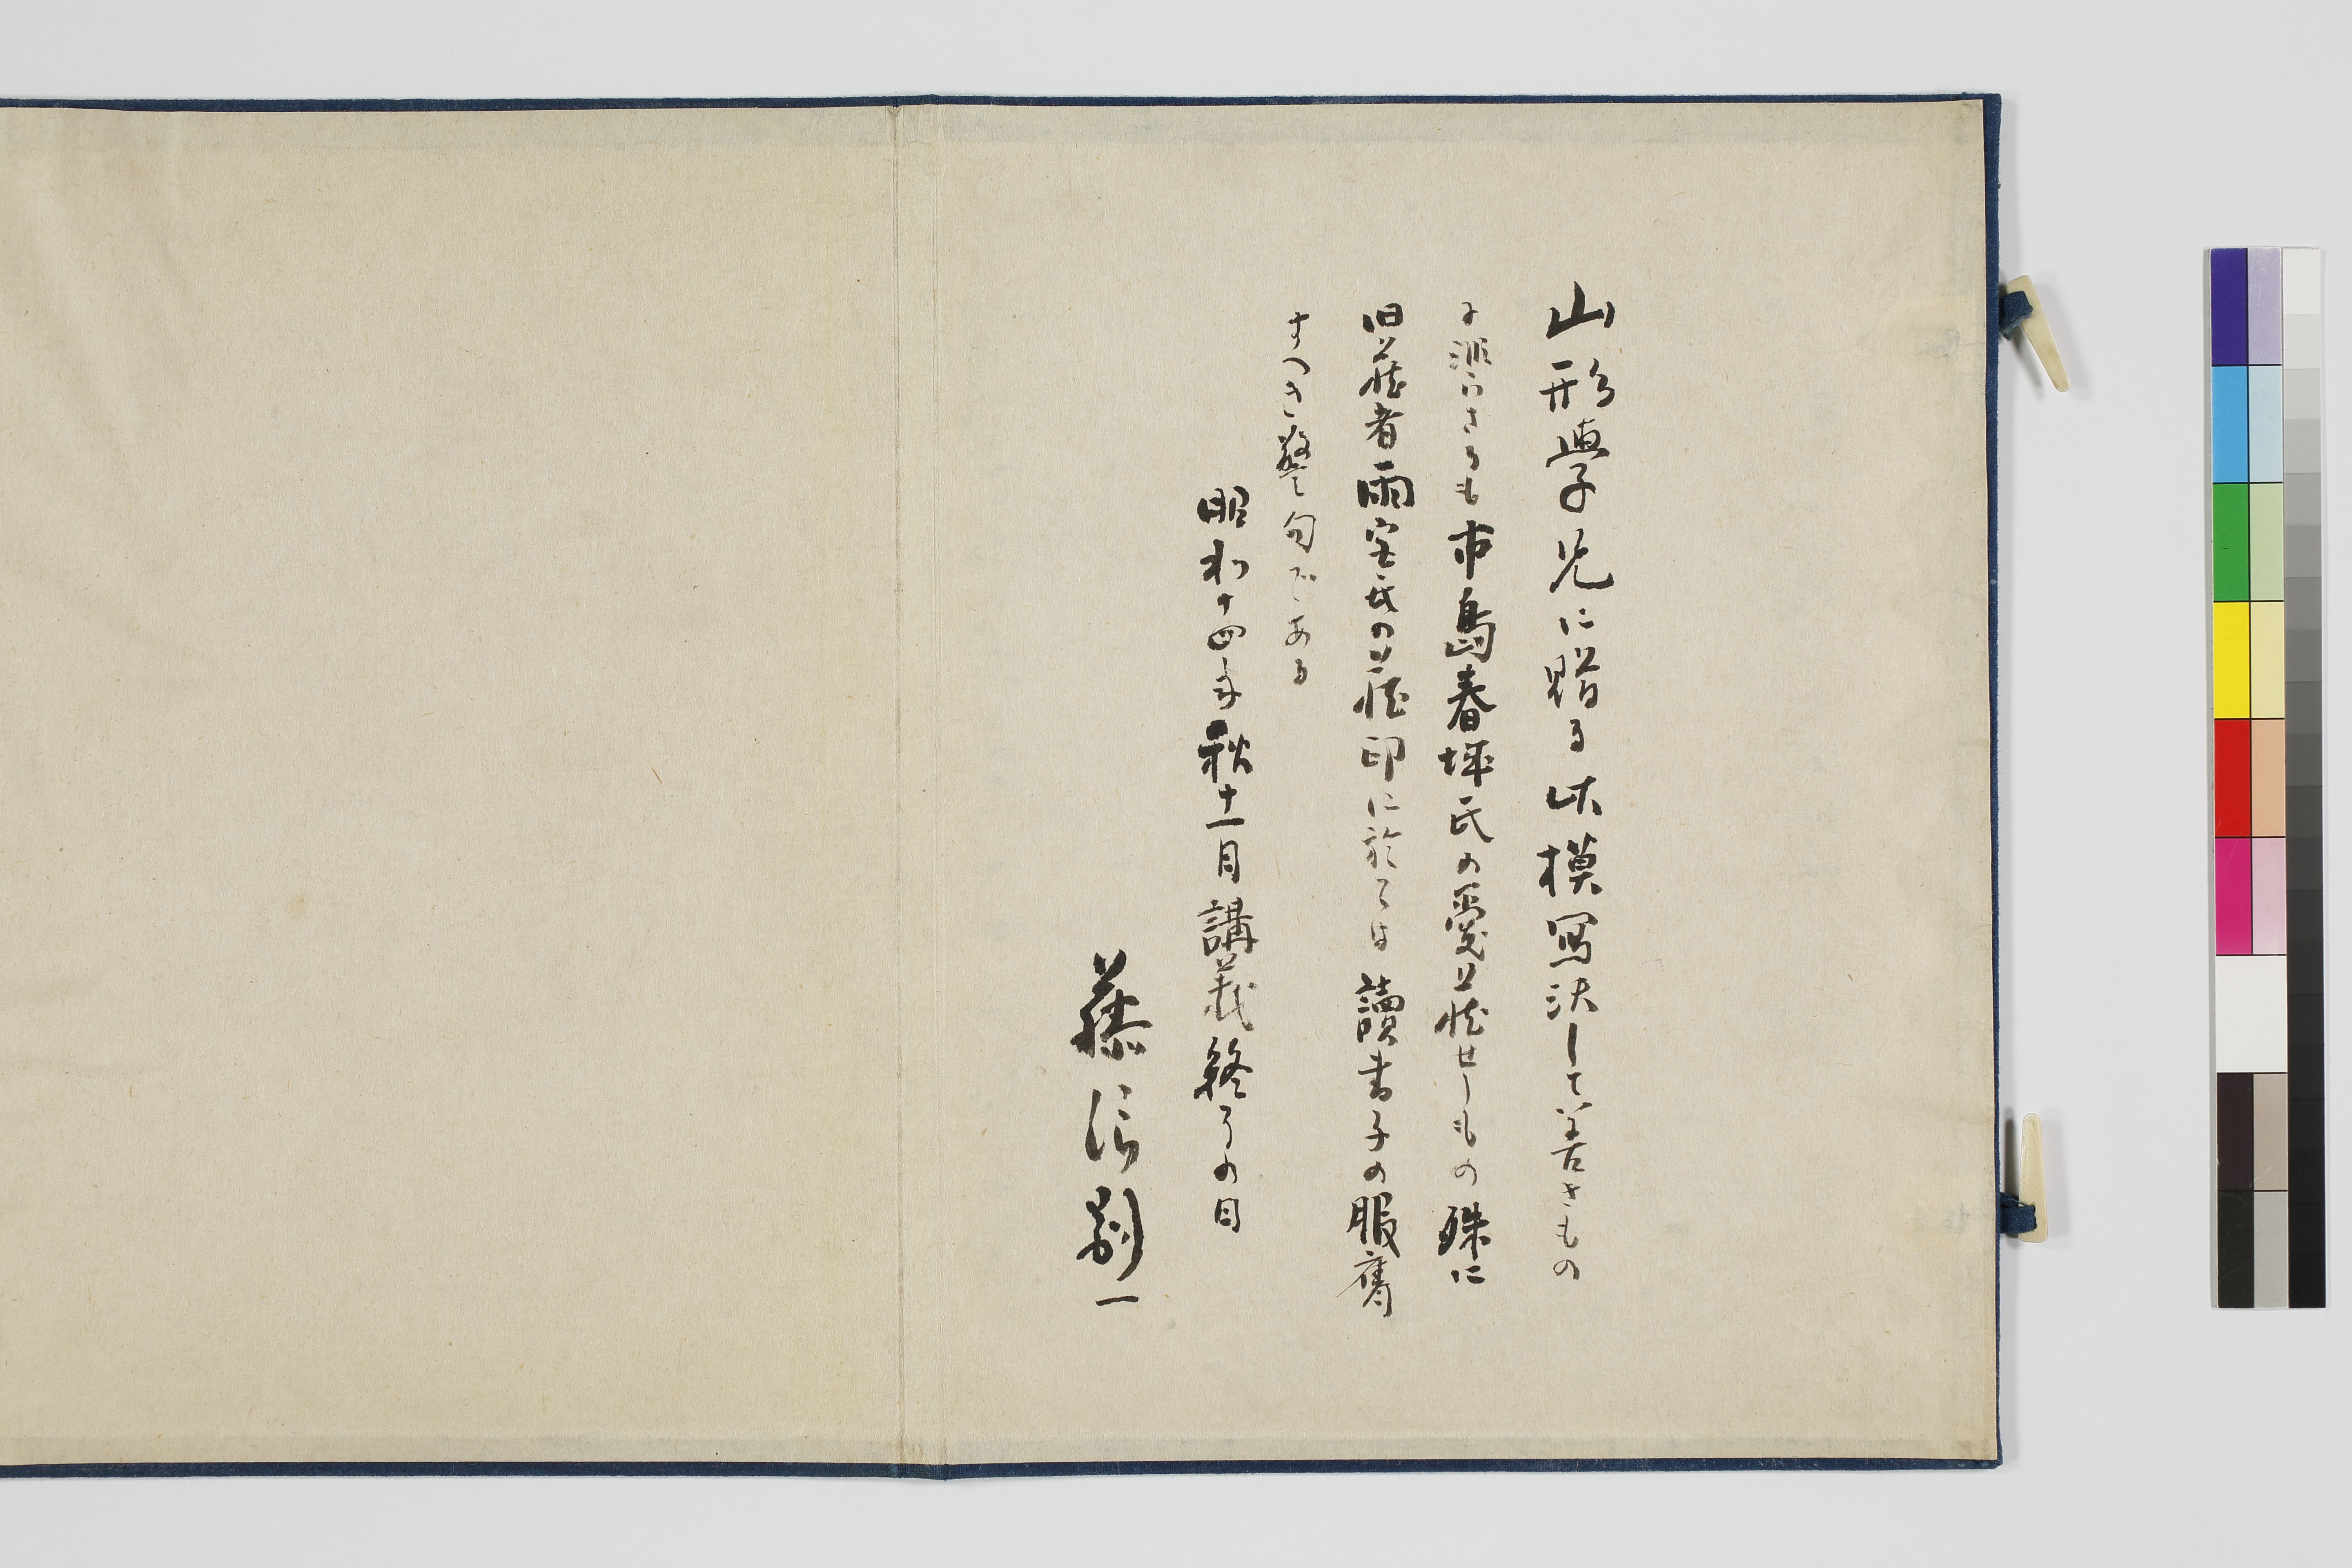 山形學兄に贈る 此模寫決して善きもの
に非ざるも市島春城氏の愛蔵せしもの 殊に
旧蔵者雨宝氏の蔵印に於ては 讀書子の服膺
すべき警句である
昭和十四年秋十一月講義終了の日
藤 一